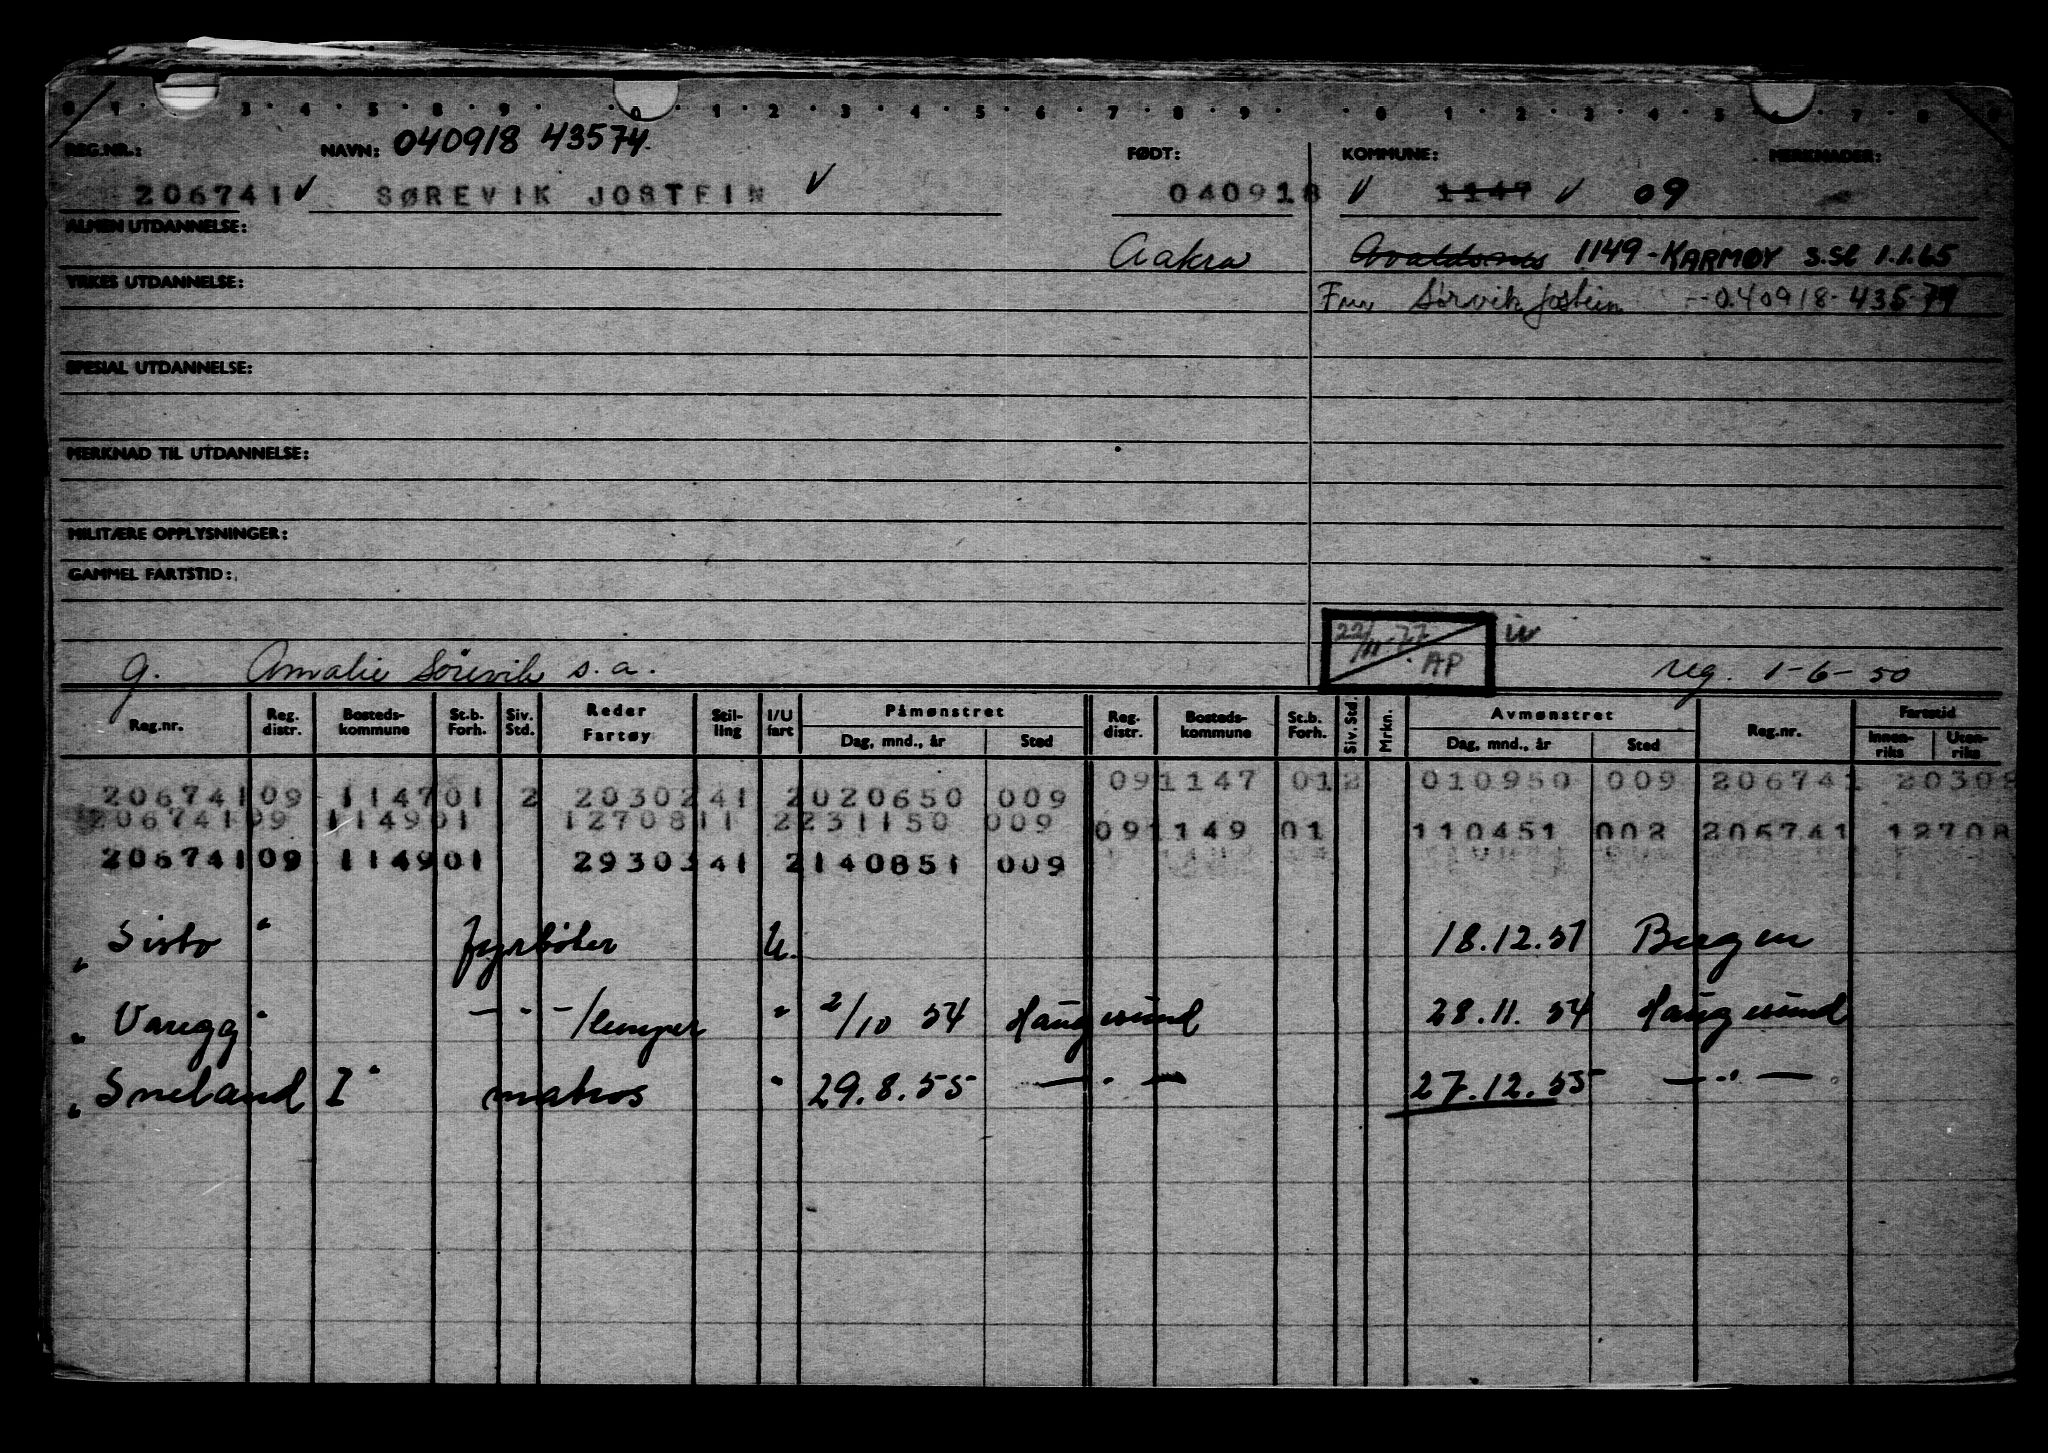 0 1 · 3 · 4 · 5 · 8 · 9 · 0 · 1 · 2 · 3 · 4 · 5 · 6 · 7 · 8 · 9 · · 0 · 1 · 2 · 3 · 4 · 5 · 6 · 7 · 8 · 0
REG.NR.: NAVN: 040918 43574 FØDT: KOMMUNE: MERKNADER:
206741 ✓ SØREVIK JOSTEIN ✓ 040918 ✓ 1147 ✓ 09
ALMEN UTDANNELSE:
Aakra Avaldsnes 1149-KARMØY s.sl 1.1.65
YRKES UTDANNELSE:
Fnr Sørvik Jostein -- 040918-435 74
SPESIAL UTDANNELSE:
MERKNAD TIL UTDANNELSE:
MILITÆRE OPPLYSNINGER:
GAMMEL FARTSTID:
22/11.77 AP
g. Amalie Sørevik s.a. reg. 1-6-50
Reg.nr. Reg. distr. Bosteds-kommune St.b. Forh. Siv. Std. Reder Fartøy Stil-ling I/U fart Påmønstret Dag, mnd., år Sted Reg. distr. Bosteds-kommune St.b. Forh. Siv. Std. Mrkn. Avmønstret Dag, mnd., år Sted Reg.nr. Fartstid Innen-riks Uten-riks
206741 09 1147 01 2 2030241 2 020650 009 09 1147 01 2 010950 009 206741 20302
206741 09 1149 01 1270811 2 231150 009 09 1149 01 110451 002 206741 12708
206741 09 1149 01 2930341 2 140851 009
" Sisto " fyrbøter U. 18.12.51 Bergen
" Varegg " — " — /lemper " 2/10 54 Haugesund 28.11.54 Haugesund
" Sneland I " matros " 29.8.55 — " — 27.12.55 — " —